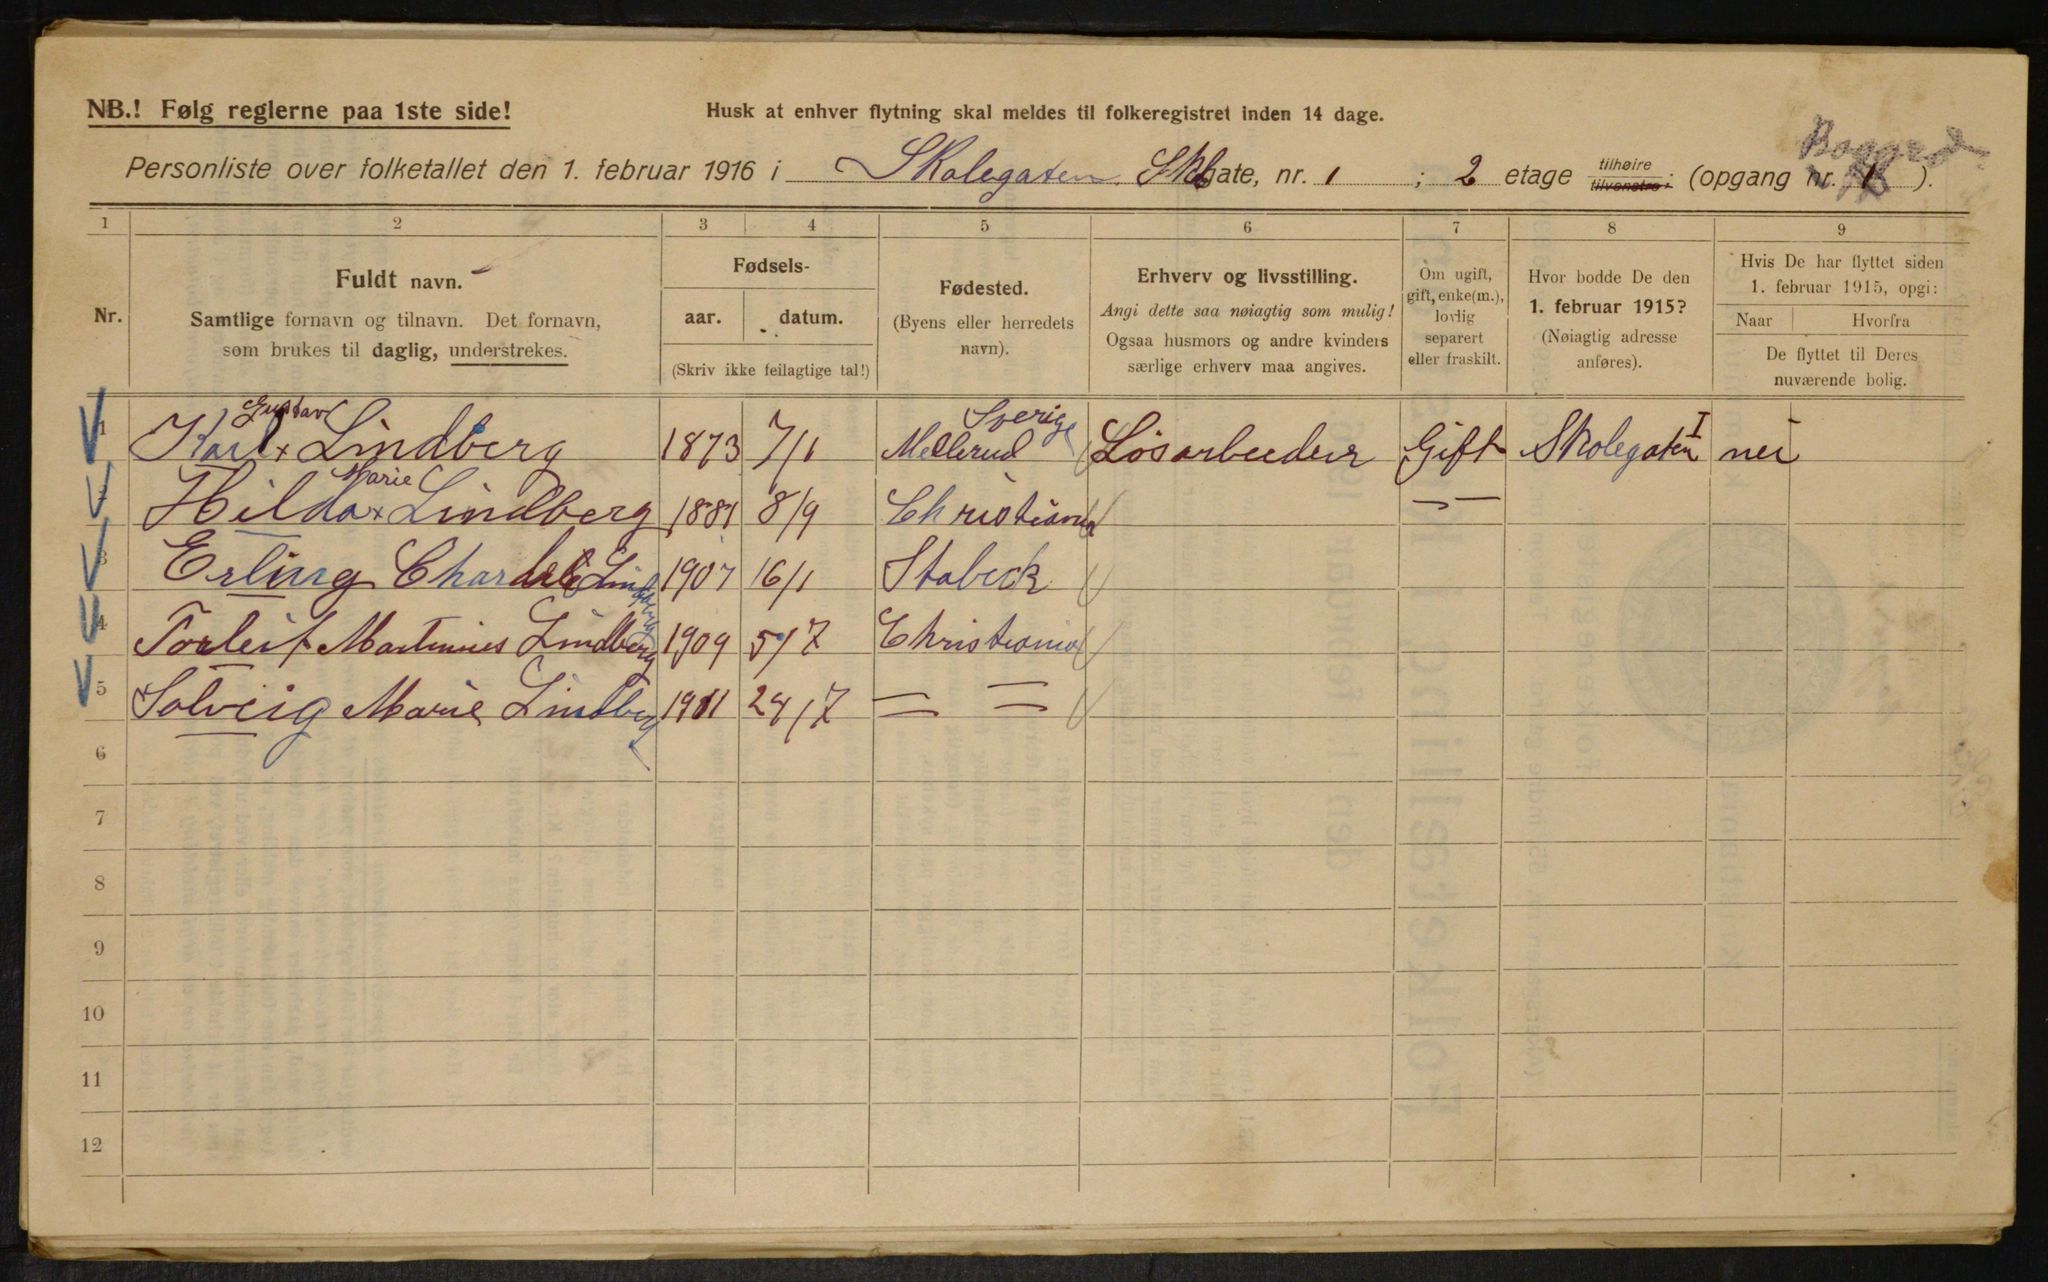 NB.! Følg reglerne paa 1ste side!
Husk at enhver flytning skal meldes til folkeregistret inden 14 dage.
Personliste over folketallet den 1. februar 1916 i Skolegaten gate, nr. 1; 2 etage tilhøire tilvenstre; (opgang nr. 1).
1 2 3 4 5 6 7 8 9
Nr.
Fuldt navn.
Samtlige fornavn og tilnavn. Det fornavn,
som brukes til daglig, understrekes.
Fødsels-
aar. datum.
(Skriv ikke feilagtige tal!)
Fødested.
(Byens eller herredets
navn).
Erhverv og livsstilling.
Angi dette saa nøiagtig som mulig!
Ogsaa husmors og andre kvinders
særlige erhverv maa angives.
Om ugift,
gift, enke(m.),
lovlig
separert
eller fraskilt.
Hvor bodde De den
1. februar 1915?
(Nøiagtig adresse
anføres).
Hvis De har flyttet siden
1. februar 1915, opgi:
Naar Hvorfra
De flyttet til Deres
nuværende bolig.
Gustav Sverige
1 Karl x Lindberg 1873 7/1 Mellerud Løsarbeider Gift Skolegaten I nei
Marie
2 Hilda x Lindberg 1881 8/9 Christiania — —
3 Erling Charles Lindberg 1907 16/1 Stabeck
4 Torleif Martinius Lindberg 1909 5/7 Christiania
5 Solveig Marie Lindberg 1911 24/7 = =
6
7
8
9
10
11
12